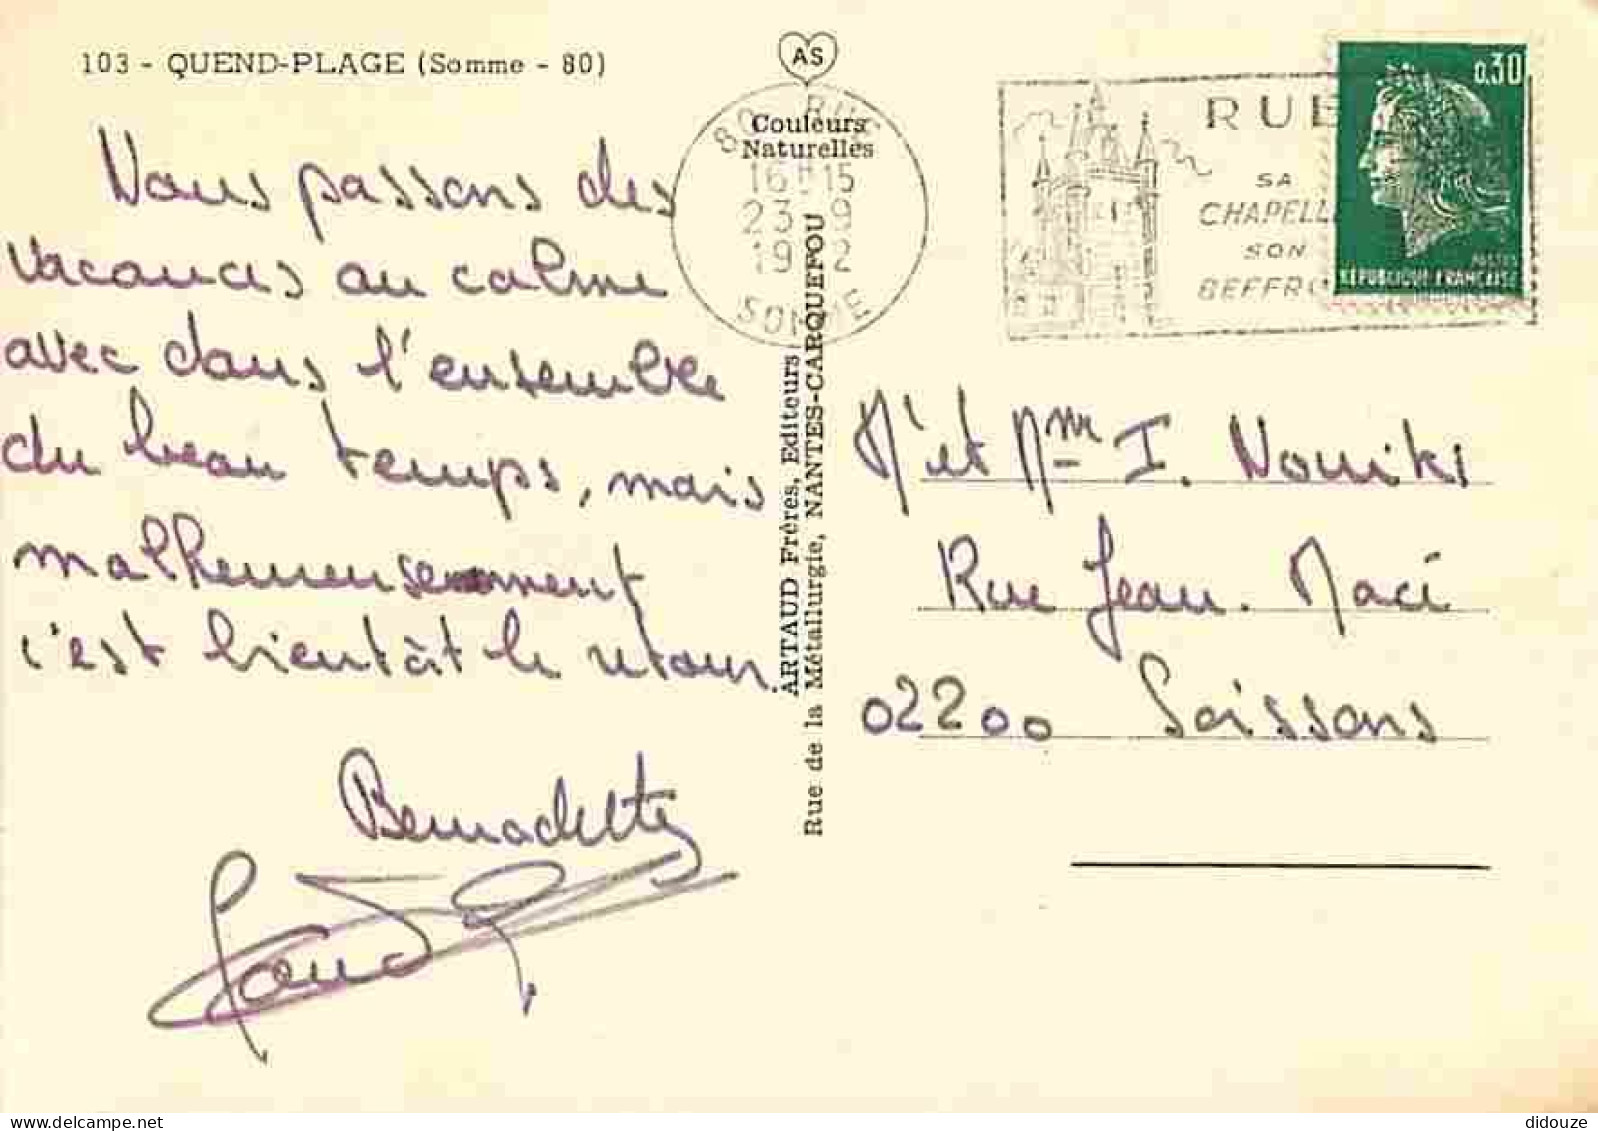 103 - QUEND-PLAGE (Somme - 80)
Nous passons des
vacances au calme
avec dans l'ensemble
du beau temps, mais
malheureusement
c'est bientôt le retour.
Bernadette
AS
Couleurs
Naturelles
80 RUE
16H15
23 9
19 2
SOMME
ARTAUD Frères, Editeurs
Rue de la Métallurgie, NANTES-CARQUEFOU
RUE
SA
CHAPELL
SON
BEFFRO
0,30
POSTES
REPUBLIQUE FRANÇAISE
Mr et Mme I. Noviks
Rue Jean. Macé
02200 Soissons
delcampe.net
didouze